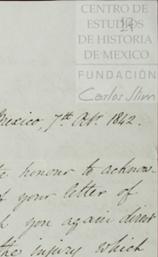 CENTRO DE
ESTUDIOS
DE HISTORIA
DE MEXICO
FUNDACIÓN
Carlos Slim
Mexico, 7th Octr. 1842.
honour to acknow
your letter of
you again direct
the injury which